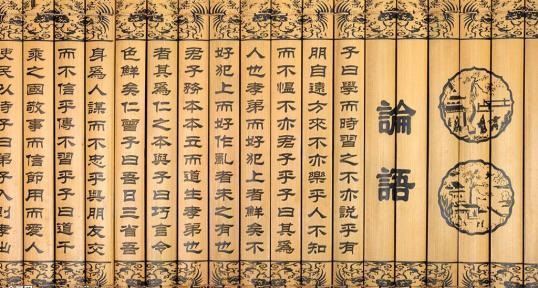 論語
子曰學而時習之不亦説乎有
朋自遠方來不亦樂乎人不知
而不愠不亦君子乎子曰其爲
人也孝弟而好犯上者鮮矣不
好犯上而好作亂者未之有也
君子務本本立而道生孝弟也
者其爲仁之本與子曰巧言令
色鮮矣仁曾子曰吾日三省吾
身爲人謀而不忠乎與朋友交
而不信乎傳不習乎子曰道千
乘之國敬事而信節用而愛人
使民以時子曰弟子入則孝出